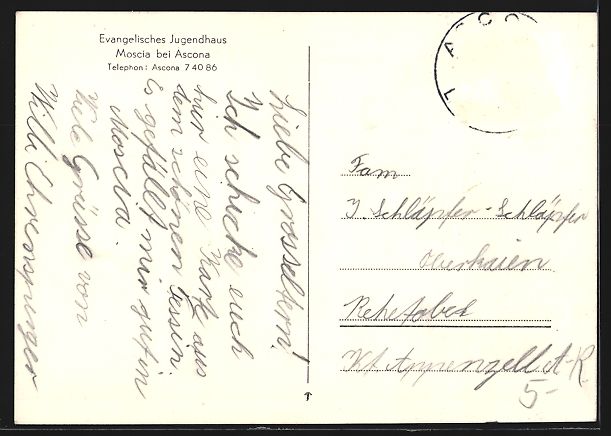 Evangelisches Jugendhaus
Moscia bei Ascona
Telephon: Ascona 7 40 86
Liebe Grosseltern!
Ich schicke euch
hier eine Karte aus
dem schönen Tessin.
Es gefällt mir gut in
Moscia.
Viele Grüsse von
Willi Ehrensperger
ASCO
Fam
J. Schläpfer-Schläpfer
Rehetobel
Kt Appenzell A-R
5-